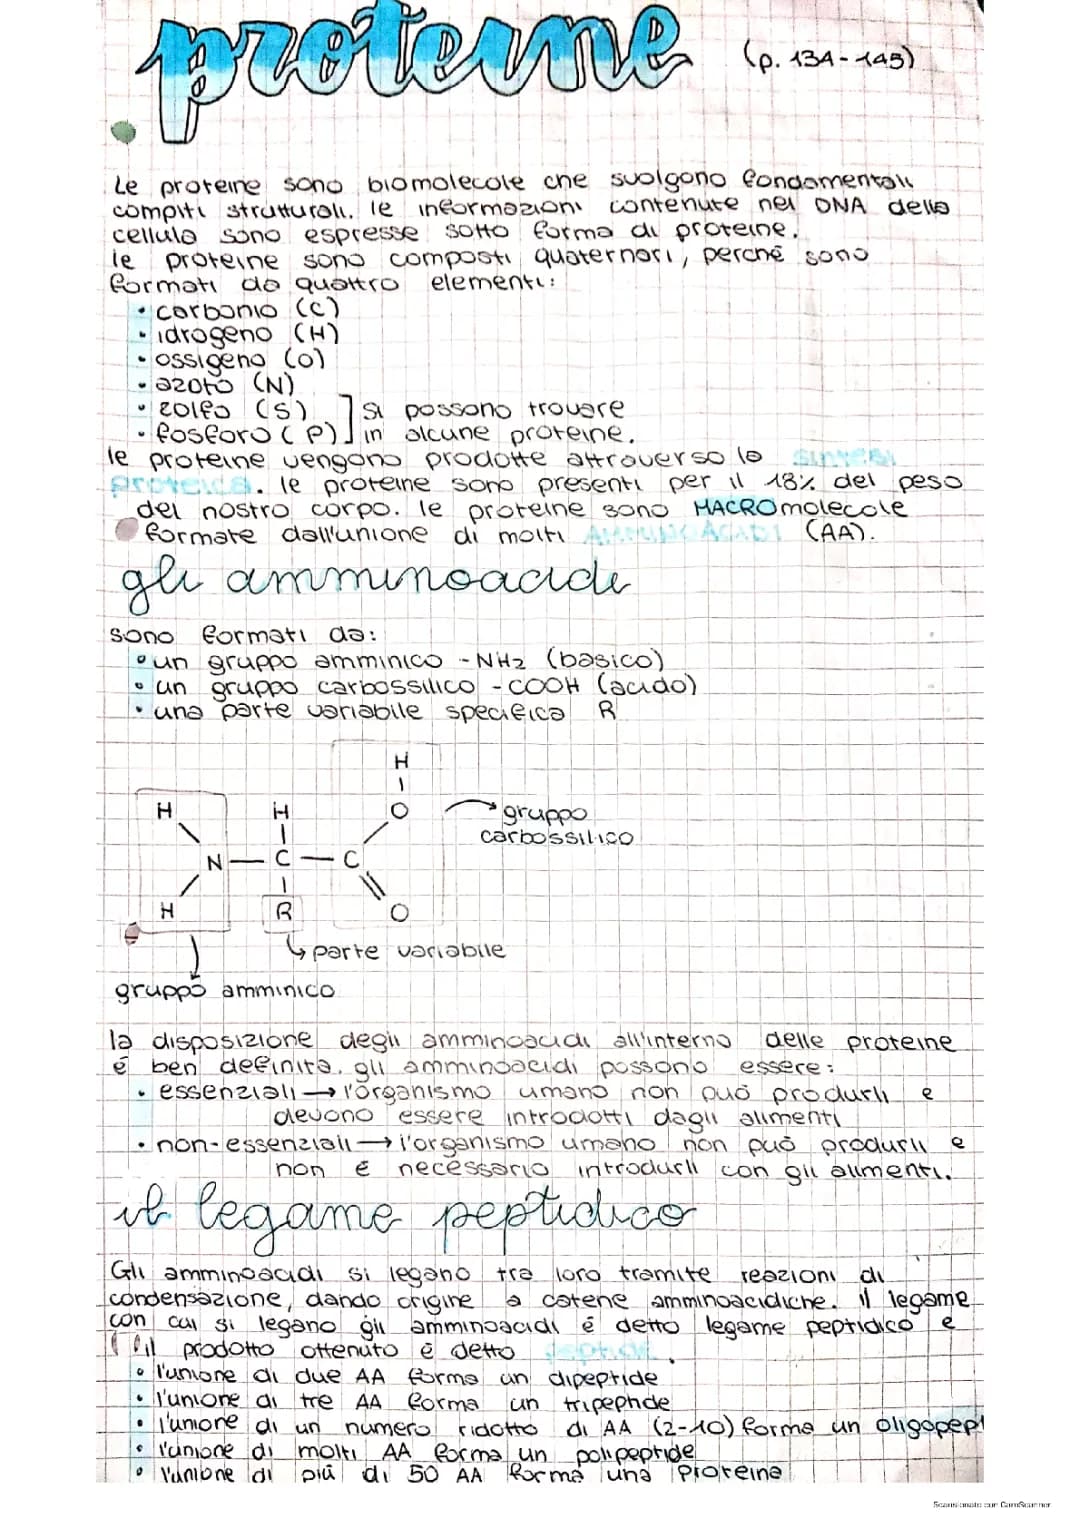 proteine (p. 134-145)
Le proteine sono biomolecole che svolgono fondamentali
compiti strutturali. le informazioni contenute nel DNA della
cellula sono espresse sotto forma di proteine.
le proteine sono composti quaternari, perché sono
formati da quattro elementi:
• carbonio (C)
• idrogeno (H)
• ossigeno (O)
• azoto (N)
• zolfo (S) ] si possono trovare
• fosforo (P) ] in alcune proteine.
le proteine vengono prodotte attraverso la sintesi
proteica. le proteine sono presenti per il 18% del peso
del nostro corpo. le proteine sono MACROmolecole
formate dall'unione di molti AMMINOACIDI (AA).
gli amminoacidi
sono formati da:
• un gruppo amminico -NH2 (basico)
• un gruppo carbossilico -COOH (acido)
• una parte variabile specifica R
H
H H O → gruppo
carbossilico
N — C — C
H R O
↳ parte variabile
gruppo amminico
la disposizione degli amminoacidi all'interno delle proteine
é ben definita. gli amminoacidi possono essere:
• essenziali → l'organismo umano non può produrli e
devono essere introdotti dagli alimenti
• non-essenziali → l'organismo umano non può produrli e
non é necessario introdurli con gli alimenti.
il legame peptidico
Gli amminoacidi si legano tra loro tramite reazioni di
condensazione, dando origine a catene amminoacidiche. il legame
con cui si legano gli amminoacidi é detto legame peptidico e
il prodotto ottenuto é detto
• l'unione di due AA forma un dipeptide
• l'unione di tre AA forma un tripeptide
• l'unione di un numero ridotto di AA (2-10) forma un oligopept
• l'unione di molti AA forma un polipeptide
• l'unione di più di 50 AA forma una proteina
Scansionato con CamScanner